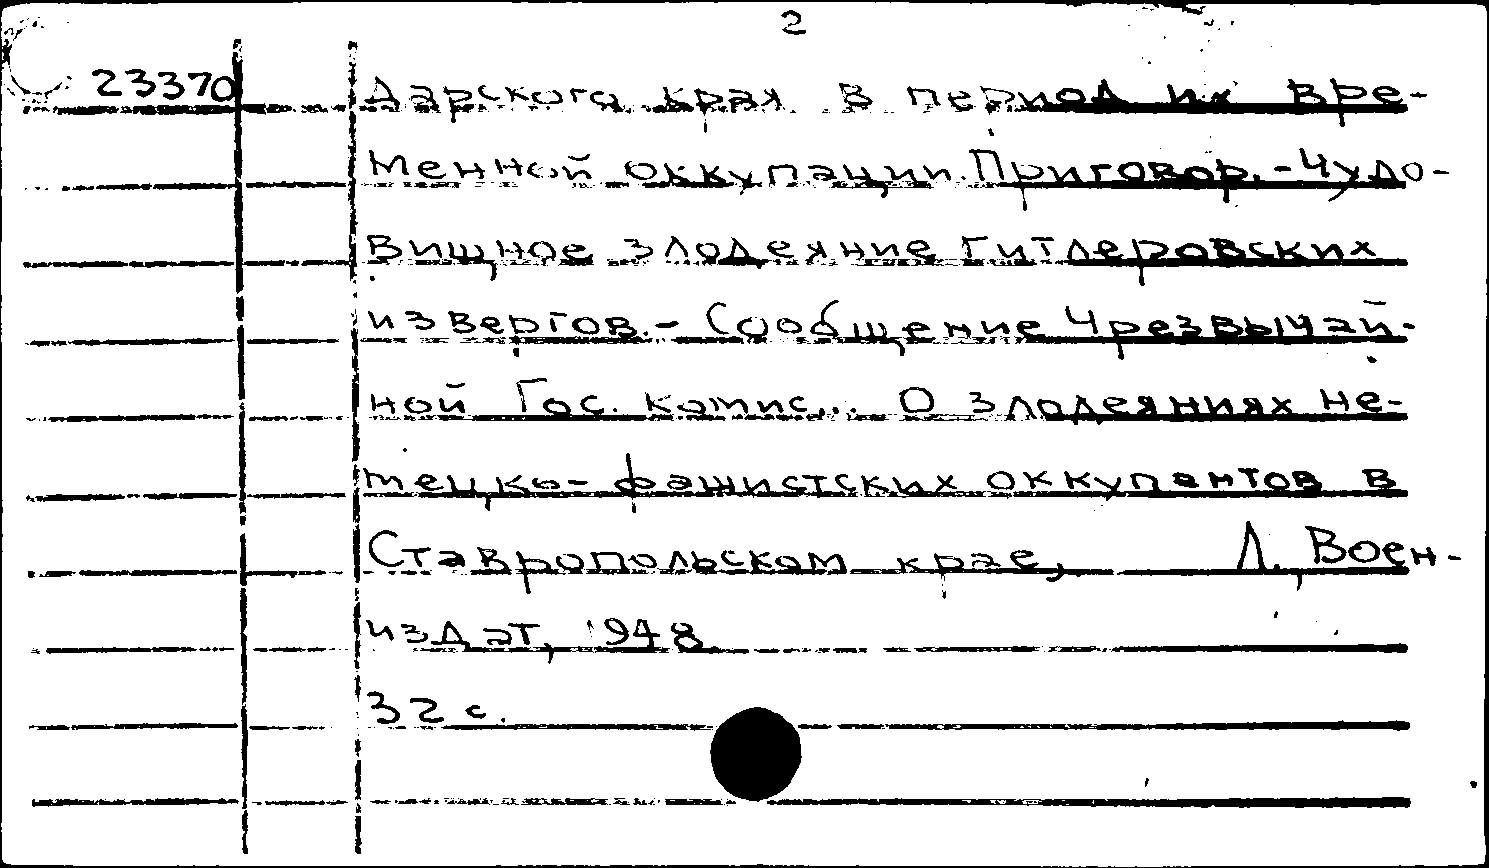 2
23370 дарского края в период их вре-
менной оккупации. Приговор. - Чудо-
вищное злодеяние гитлеровских
извергов. - Сообщение Чрезвычай-
ной Гос. комис... О злодеяниях не-
мецко-фашистских оккупантов в
Ставропольском крае, Л., Воен-
издат, 1948
32 с.